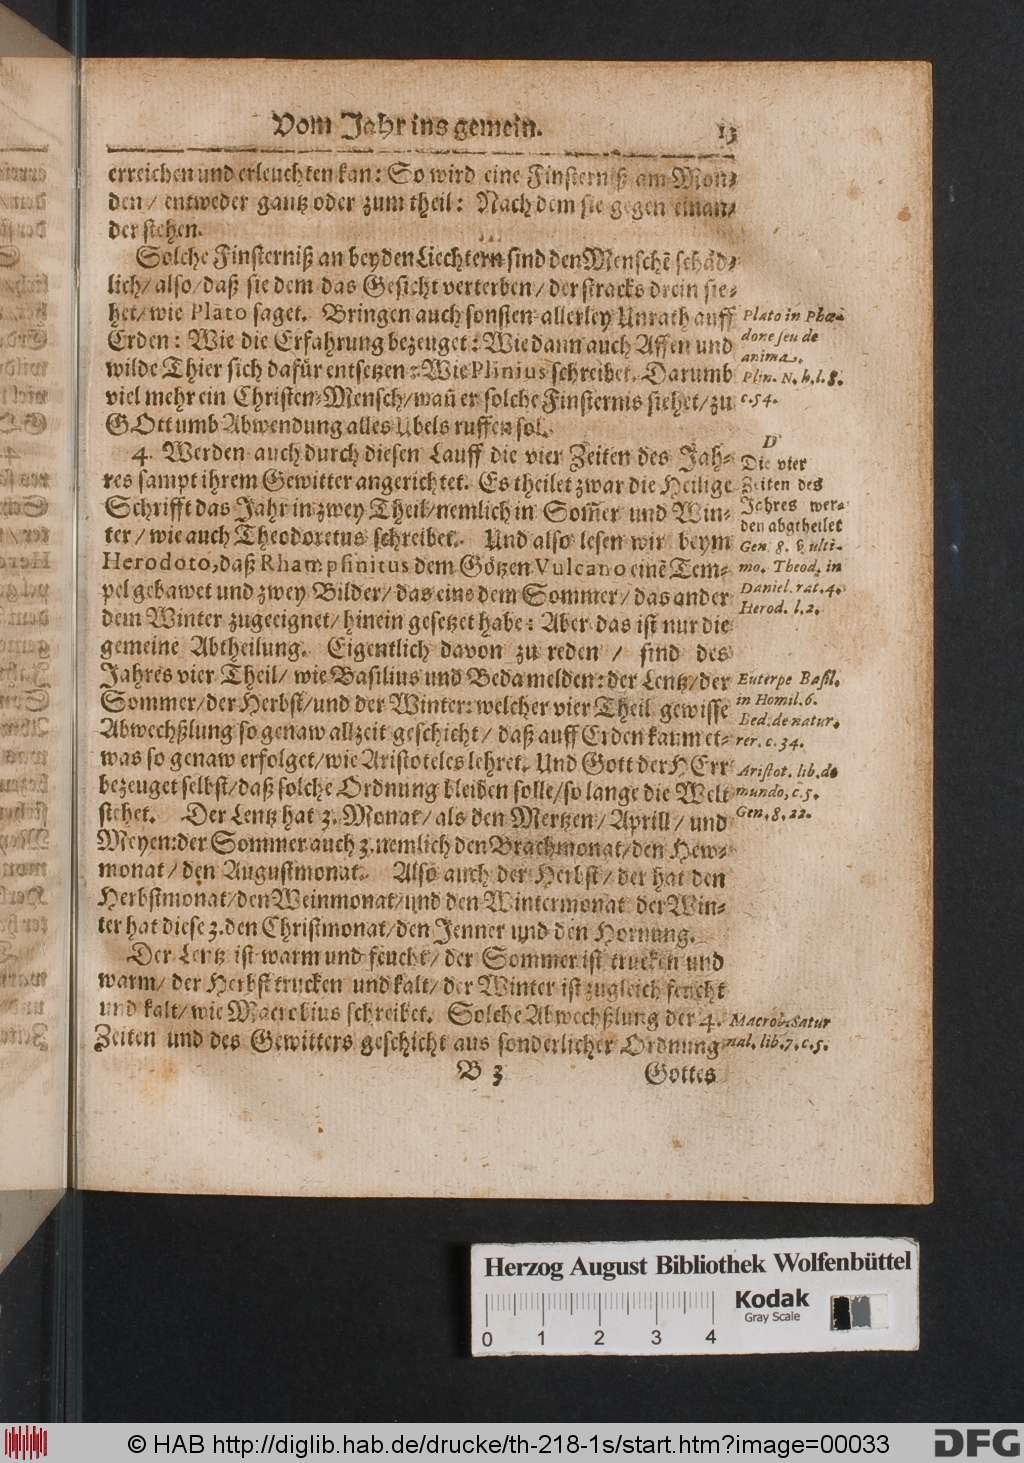 Vom Jahr ins gemein. 13
erreichen und erleuchten kan: So wird eine Finsterniß am Mon-
den/ entweder gantz oder zum theil: Nach dem sie gegen einan-
der stehen.
Solche Finsterniß an beyden Liechtern sind den Menschē schäd-
lich/ also/ daß sie dem das Gesicht verterben/ der stracks drein sie-
het/ wie Plato saget. Bringen auch sonsten allerley Unrath auff
Erden: Wie die Erfahrung bezeuget: Wie dann auch Affen und
wilde Thier sich dafür entsetzen: Wie Plinius schreibet. Darumb
viel mehr ein Christen-Mensch/ wañ er solche Finsternis siehet/ zu
GOtt umb Abwendung alles Übels ruffen sol.
Plato in Phæ-
done seu de
anima.
Plin. N. h. l. 8.
c. 54.
4. Werden auch durch diesen Lauff die vier Zeiten des Jah-
res sampt ihrem Gewitter angerichtet. Es theilet zwar die Heilige
Schrifft das Jahr in zwey Theil/ nemlich in Som̃er und Win-
ter/ wie auch Theodoretus schreibet. Und also lesen wir beym
Herodoto, daß Rhampsinitus dem Götzen Vulcano einē Tem-
pel gebawet und zwey Bilder/ das eins dem Sommer/ das ander
dem Winter zugeeignet/ hinein gesetzet habe: Aber das ist nur die
gemeine Abtheilung. Eigentlich davon zu reden/ sind des
Jahres vier Theil/ wie Basilius und Beda melden: der Lentz/ der
Sommer/ der Herbst/ und der Winter: welcher vier Theil gewisse
Abwechßlung so genaw allzeit geschicht/ daß auff Erden kaum et-
was so genaw erfolget/ wie Aristoteles lehret. Und Gott der HErr
bezeuget selbst/ daß solche Ordnung bleiben solle/ so lange die Welt
stehet. Der Lentz hat 3. Monat/ als den Mertzen/ Aprill/ und
Meyen: der Sommer auch 3. nemlich den Brachmonat/ den Hew-
monat/ den Augustmonat. Also auch der Herbst/ der hat den
Herbstmonat/ den Weinmonat/ und den Wintermonat der Win-
ter hat diese 3. den Christmonat/ den Jenner und den Hornung.
D
Die vier
Zeiten des
Jahres wer-
den abgtheilet
Gen. 8. v. ulti-
mo. Theod. in
Daniel. rat. 4.
Herod. l. 2.
Euterpe Basil.
in Homil. 6.
Bed. de natur.
rer. c. 34.
Aristot. lib. de
mundo, c. 5.
Gen. 8, 22.
Der Lentz ist warm und feucht/ der Sommer ist trucken und
warm/ der Herbst trucken und kalt/ der Winter ist zugleich feucht
und kalt/ wie Macrobius schreibet. Solche Abwechßlung der 4.
Zeiten und des Gewitters geschicht aus sonderlicher Ordnung
Macrob. Satur
nal. lib. 7. c. 5.
B 3 Gottes
Herzog August Bibliothek Wolfenbüttel
Kodak
Gray Scale
0 1 2 3 4
© HAB http://diglib.hab.de/drucke/th-218-1s/start.htm?image=00033
DFG